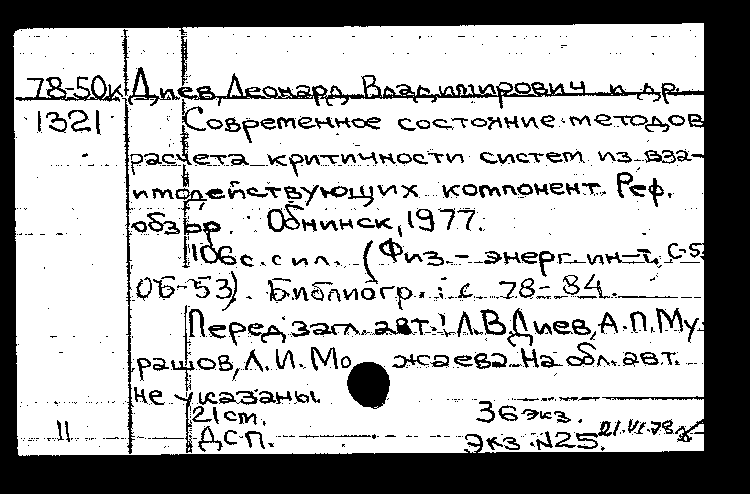 78-50к Диев, Леонард Владимирович и др.
1321 Современное состояние методов
расчета критичности систем из вза-
имодействующих компонент. Реф.
обзор. Обнинск, 1977.
106с. с ил. (Физ.-энерг. ин-т.
06-53). Библиогр.: с 78-84.
Перед загл. авт.: Л.В.Диев, А.П.Му-
рашов, Л.И.Мо жаева. На обл. авт.
не указаны.
21 см. 36 экз.
11 ДСП. Экз. N25. 21.VI.78